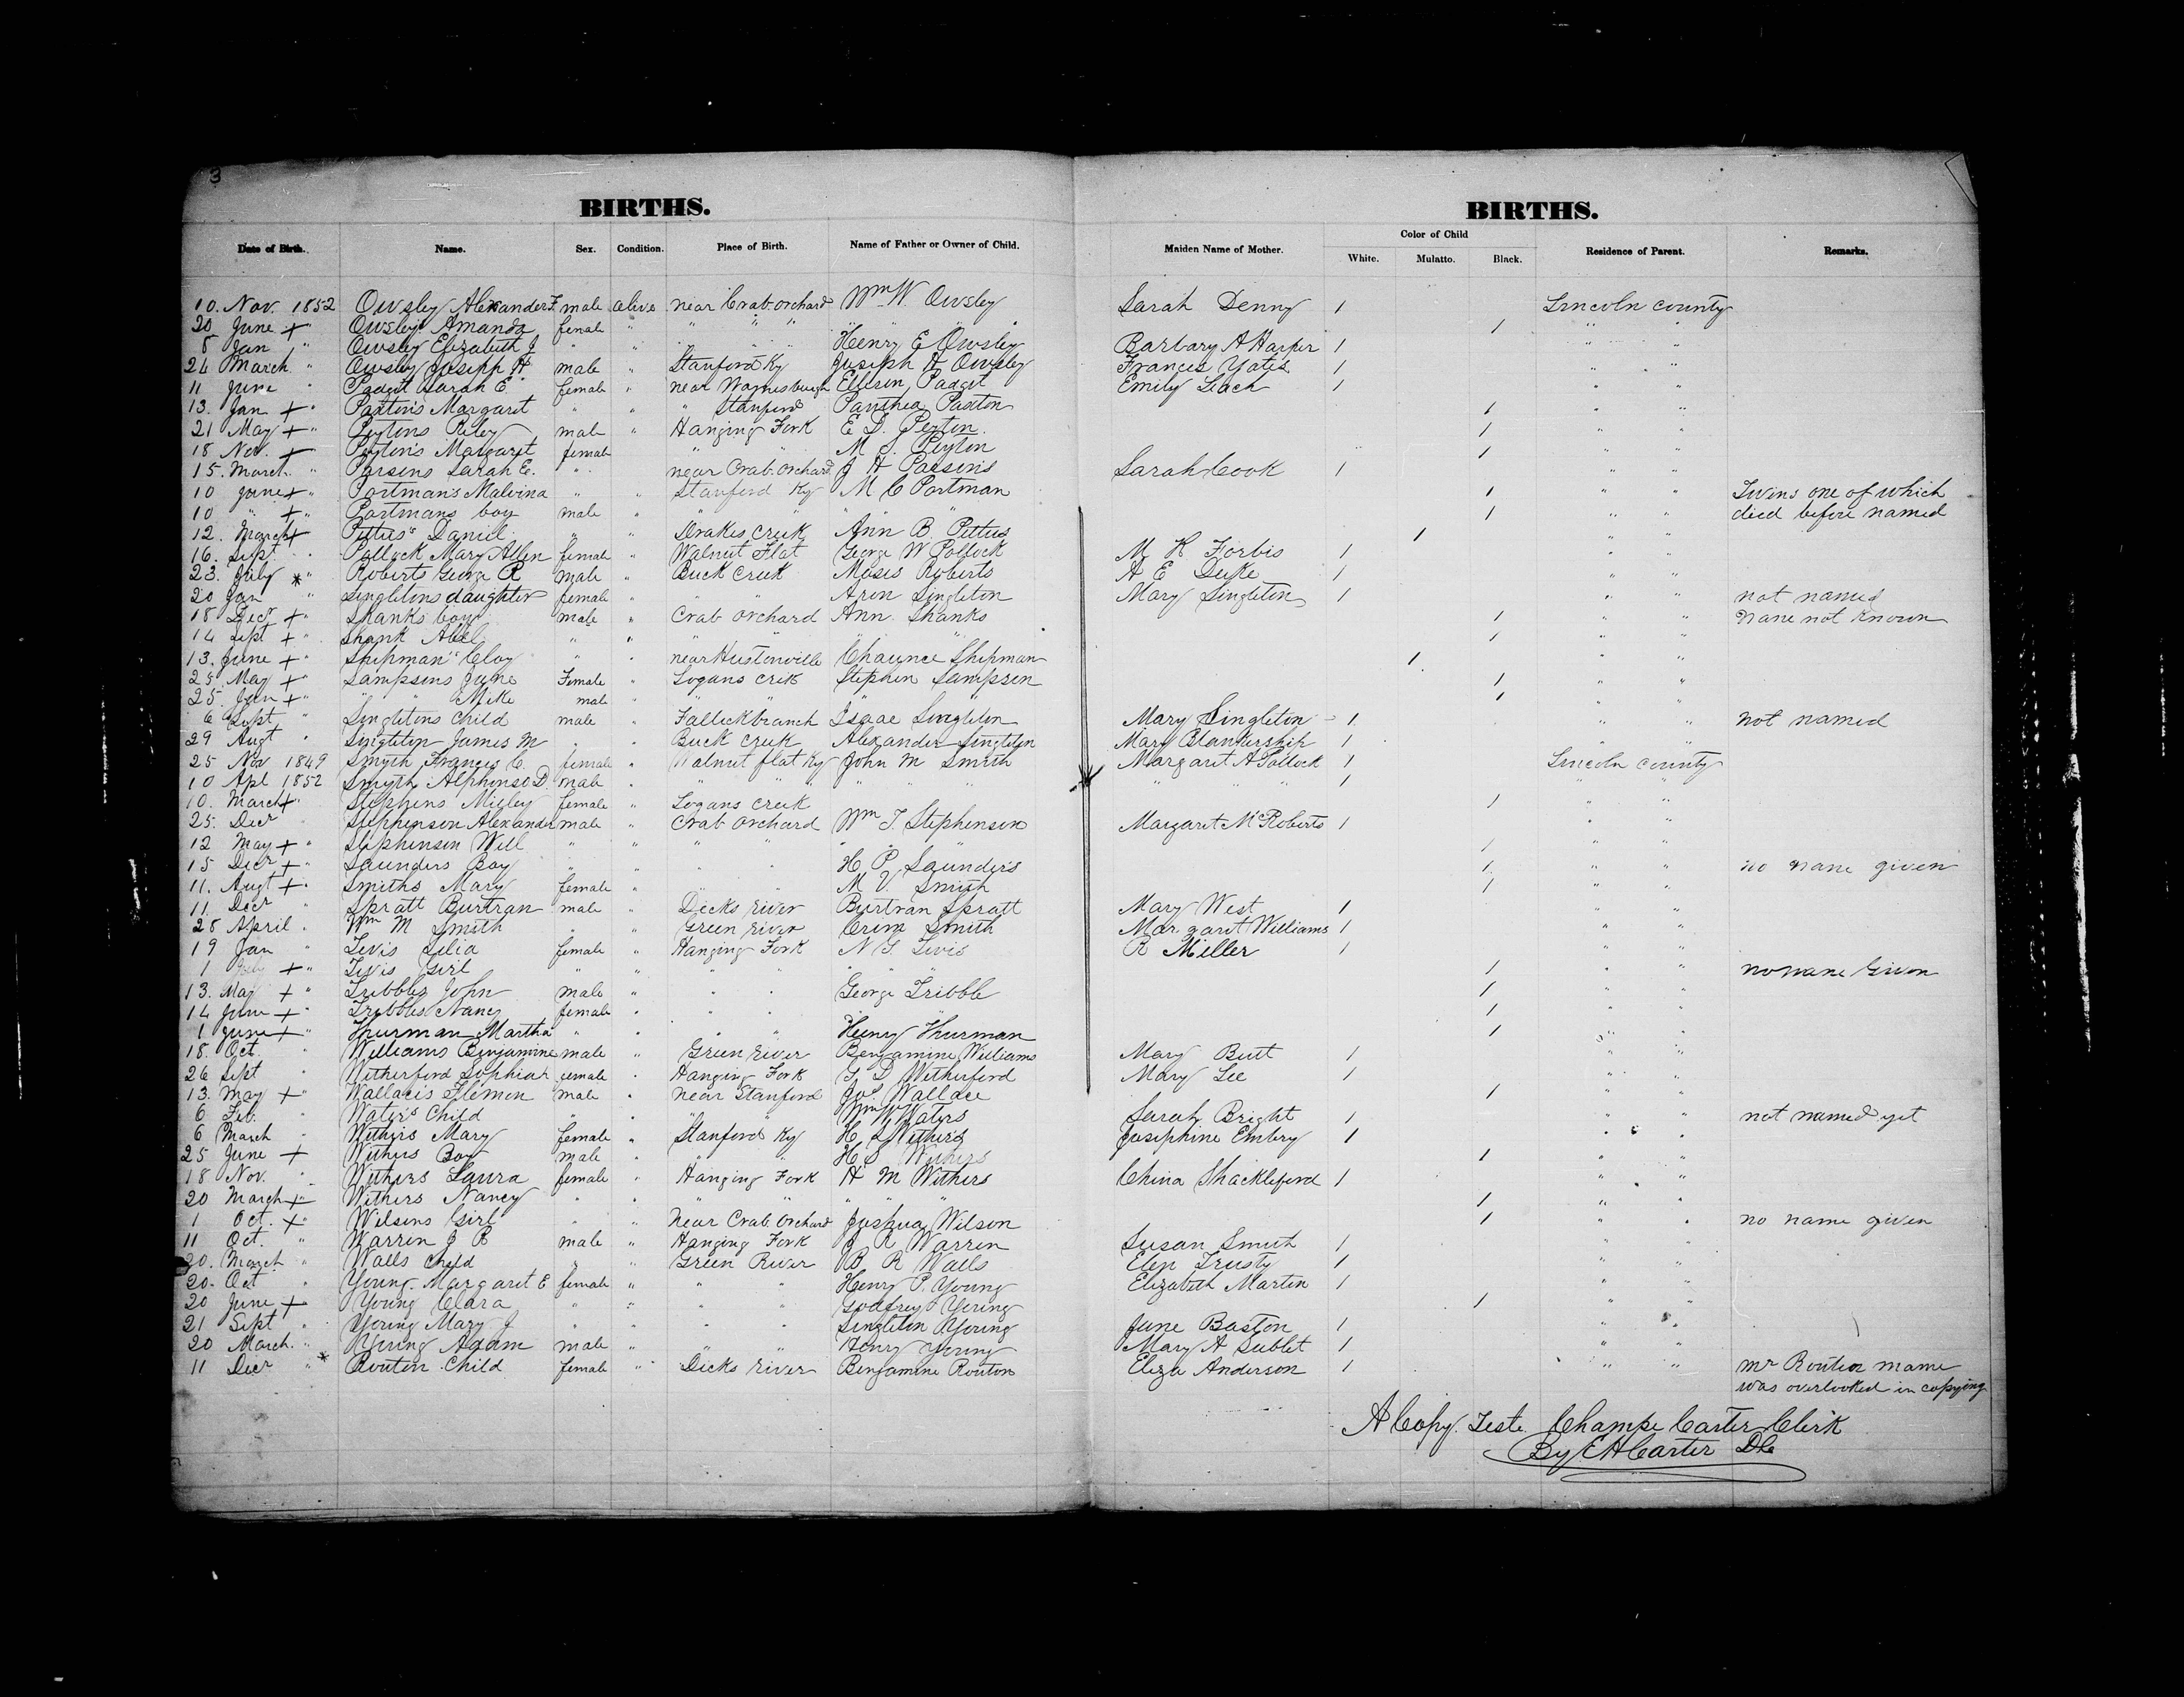 3
BIRTHS. BIRTHS.
Date of Birth. Name. Sex. Condition. Place of Birth. Name of Father or Owner of Child. Maiden Name of Mother. Color of Child White. Mulatto. Black. Residence of Parent. Remarks.
10. Nov. 1852 Owsley Alexander F. male alive near Crab orchard Wm W. Owsley Sarah Denny 1 Lincoln county
20 June + " Owsley's Amanda female " " " " " 1 " "
8 Jan " Owsley Elizabeth J " " " " Henry E Owsley Barbary A Harper 1 " "
24 March " Owsley Joseph H male " Stanford Ky Joseph H Owsley Frances Yates 1 " "
11 June " Padgit Sarah E. female " near Waynesburgh Ellison Padgit Emily Leach 1 " "
13. Jan + " Paxton's Margaret " " " Stanford Panthea Paxton 1 " "
21 May + " Peytons Riley male " Hanging Fork E D. Peyton. 1 " "
18 Nov. + Peyton's Margaret female " " M S. Peyton 1 " "
15. March. " Parsons Sarah E. " near Crab. orchard J H Parsons Sarah Cook 1 " "
10 June + " Portman's Malvina " " Stanford Ky M C Portman 1 " " Twins one of which
10 " + " Portmans boy male " " " " 1 " " died before named
12. March + Pittus' Daniel " " Drakes Creek Ann B. Pittus 1 " "
16. Sept " Pollock Mary Allen female " Walnut Flat George W Pollock M K Forbis 1 " "
23. July * " Roberts George R male " Buck Creek Moses Roberts A E Duke 1 " "
20 Jan " Singletons daughter female " " " Aron Singleton Mary Singleton 1 " " not named
18 Decr + " Shanks boy male " Crab Orchard Ann Shanks 1 " " name not known
14 Sept + " Shank Abel " " " " 1 " "
13. June + " Shipman's Clay " " near Hustonville Chaunce Shipman 1 " "
25 May + " Sampsons June Female " Logans Crek Stephen Sampson 1 " "
25. Jan + " " " Mike male " " " " 1 " "
6 Sept " Singletons child male " Fallickbranch Isaac Singleton Mary Singleton 1 " " not named
29 Augt " Singleton James M " " Buck Creek Alexander Singleton Mary Blankership 1 " "
25 Nov 1849 Smyth Frances C. female " Walnut flat Ky John M Smith Margaret A Pollock 1 Lincoln county
10 Apl 1852 Smyth Alphonso D. male " " " " " " " 1 " "
10. March + " Stephens Migley female " Logans Creek 1 " "
25. Decr " Stephenson Alexander male " Crab Orchard Wm T. Stephenson Margaret McRoberts 1 " "
12 May + " Stephenson Will " " " " " " 1 " "
15 Decr + " Saunders Boy " " " " H. P. Saunders 1 " " no name given
11. Augt + " Smiths Mary female " " M V. Smith 1 " "
11. Decr " Spratt Burtran male " Dicks River Burtran Spratt Mary West 1 " "
28 April " Wm M Smith " " Green River Smith Margaret Williams 1 " "
19 Jan " Tevis Lilia female " Hanging Fork N G Tevis R Miller 1 " "
1 + " Tevis Girl " " " " " " 1 " " no name Given
13. May + " Tribbles John male " " " George Tribble 1 " "
14 June + " Tribbles Nancy female " " " " 1 " "
1 June + " Thurman Martha " " " " Henry Thurman 1 " "
18. Oct. " Williams Benjamine male " Green River Benjamine Williams Mary Butt 1 " "
26 Sept " Witherford Sophia female " Hanging Fork Witherford Mary Lee 1 " "
13. May + " Wallaces Flemon male " near Stanford Jos Wallace 1 " "
6 Feb. " Water's Child " " " " Wm W Waters Sarah Bright 1 not named yet
6 March " Withers Mary female " Stanford Ky H S Withers Josephine Embry 1 " "
25 June + Withers Boy male " " " H S Withers 1 " "
18 Nov. " Withers Laura female " Hanging Fork H M Withers China Shackleford 1 " "
20 March + " Withers Nancy " " " " " " 1 " "
1 Oct. + " Wilsons Girl " " Near Crab Orchard Joshua Wilson 1 " " no name given
11 Oct. " Warren J R male " Hanging Fork J R Warren Susan Smith 1 " "
20. March " Walls child " " Green River B R Walls Elen Trusty 1 " "
20. Oct " Young. Margaret E female " " " Henry P. Young Elizabeth Martin 1 " "
20 June + Young Clara " " " " Godfrey Young 1 " "
21 Sept " Young Mary J " " " " Singleton Young June Baston 1 " "
20 March. " Young Adam male " " " Henry Young Mary A Sublet 1 " "
11 Decr " * Routon Child female " Dicks River Benjamine Routon Eliza Anderson 1 " " Mr Routon name
was overlooked in copying
A Copy. Teste Champe Carter Clerk
By E H Carter DC